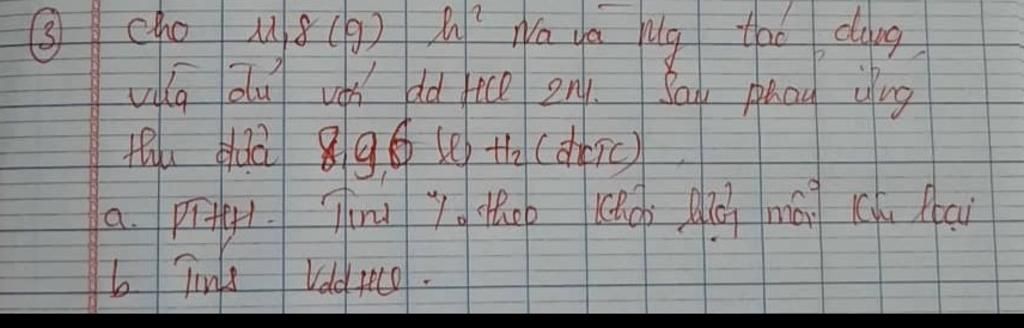 ③ Cho 11,8 (g) h² Na và Mg tác dụng
vừa đủ với dd HCl 2M. Sau phản ứng
thu được 8,96 (l) H₂ (đktc)
a. PTHH. Tính % theo khối lượng mỗi kim loại
b Tính VddHCl.